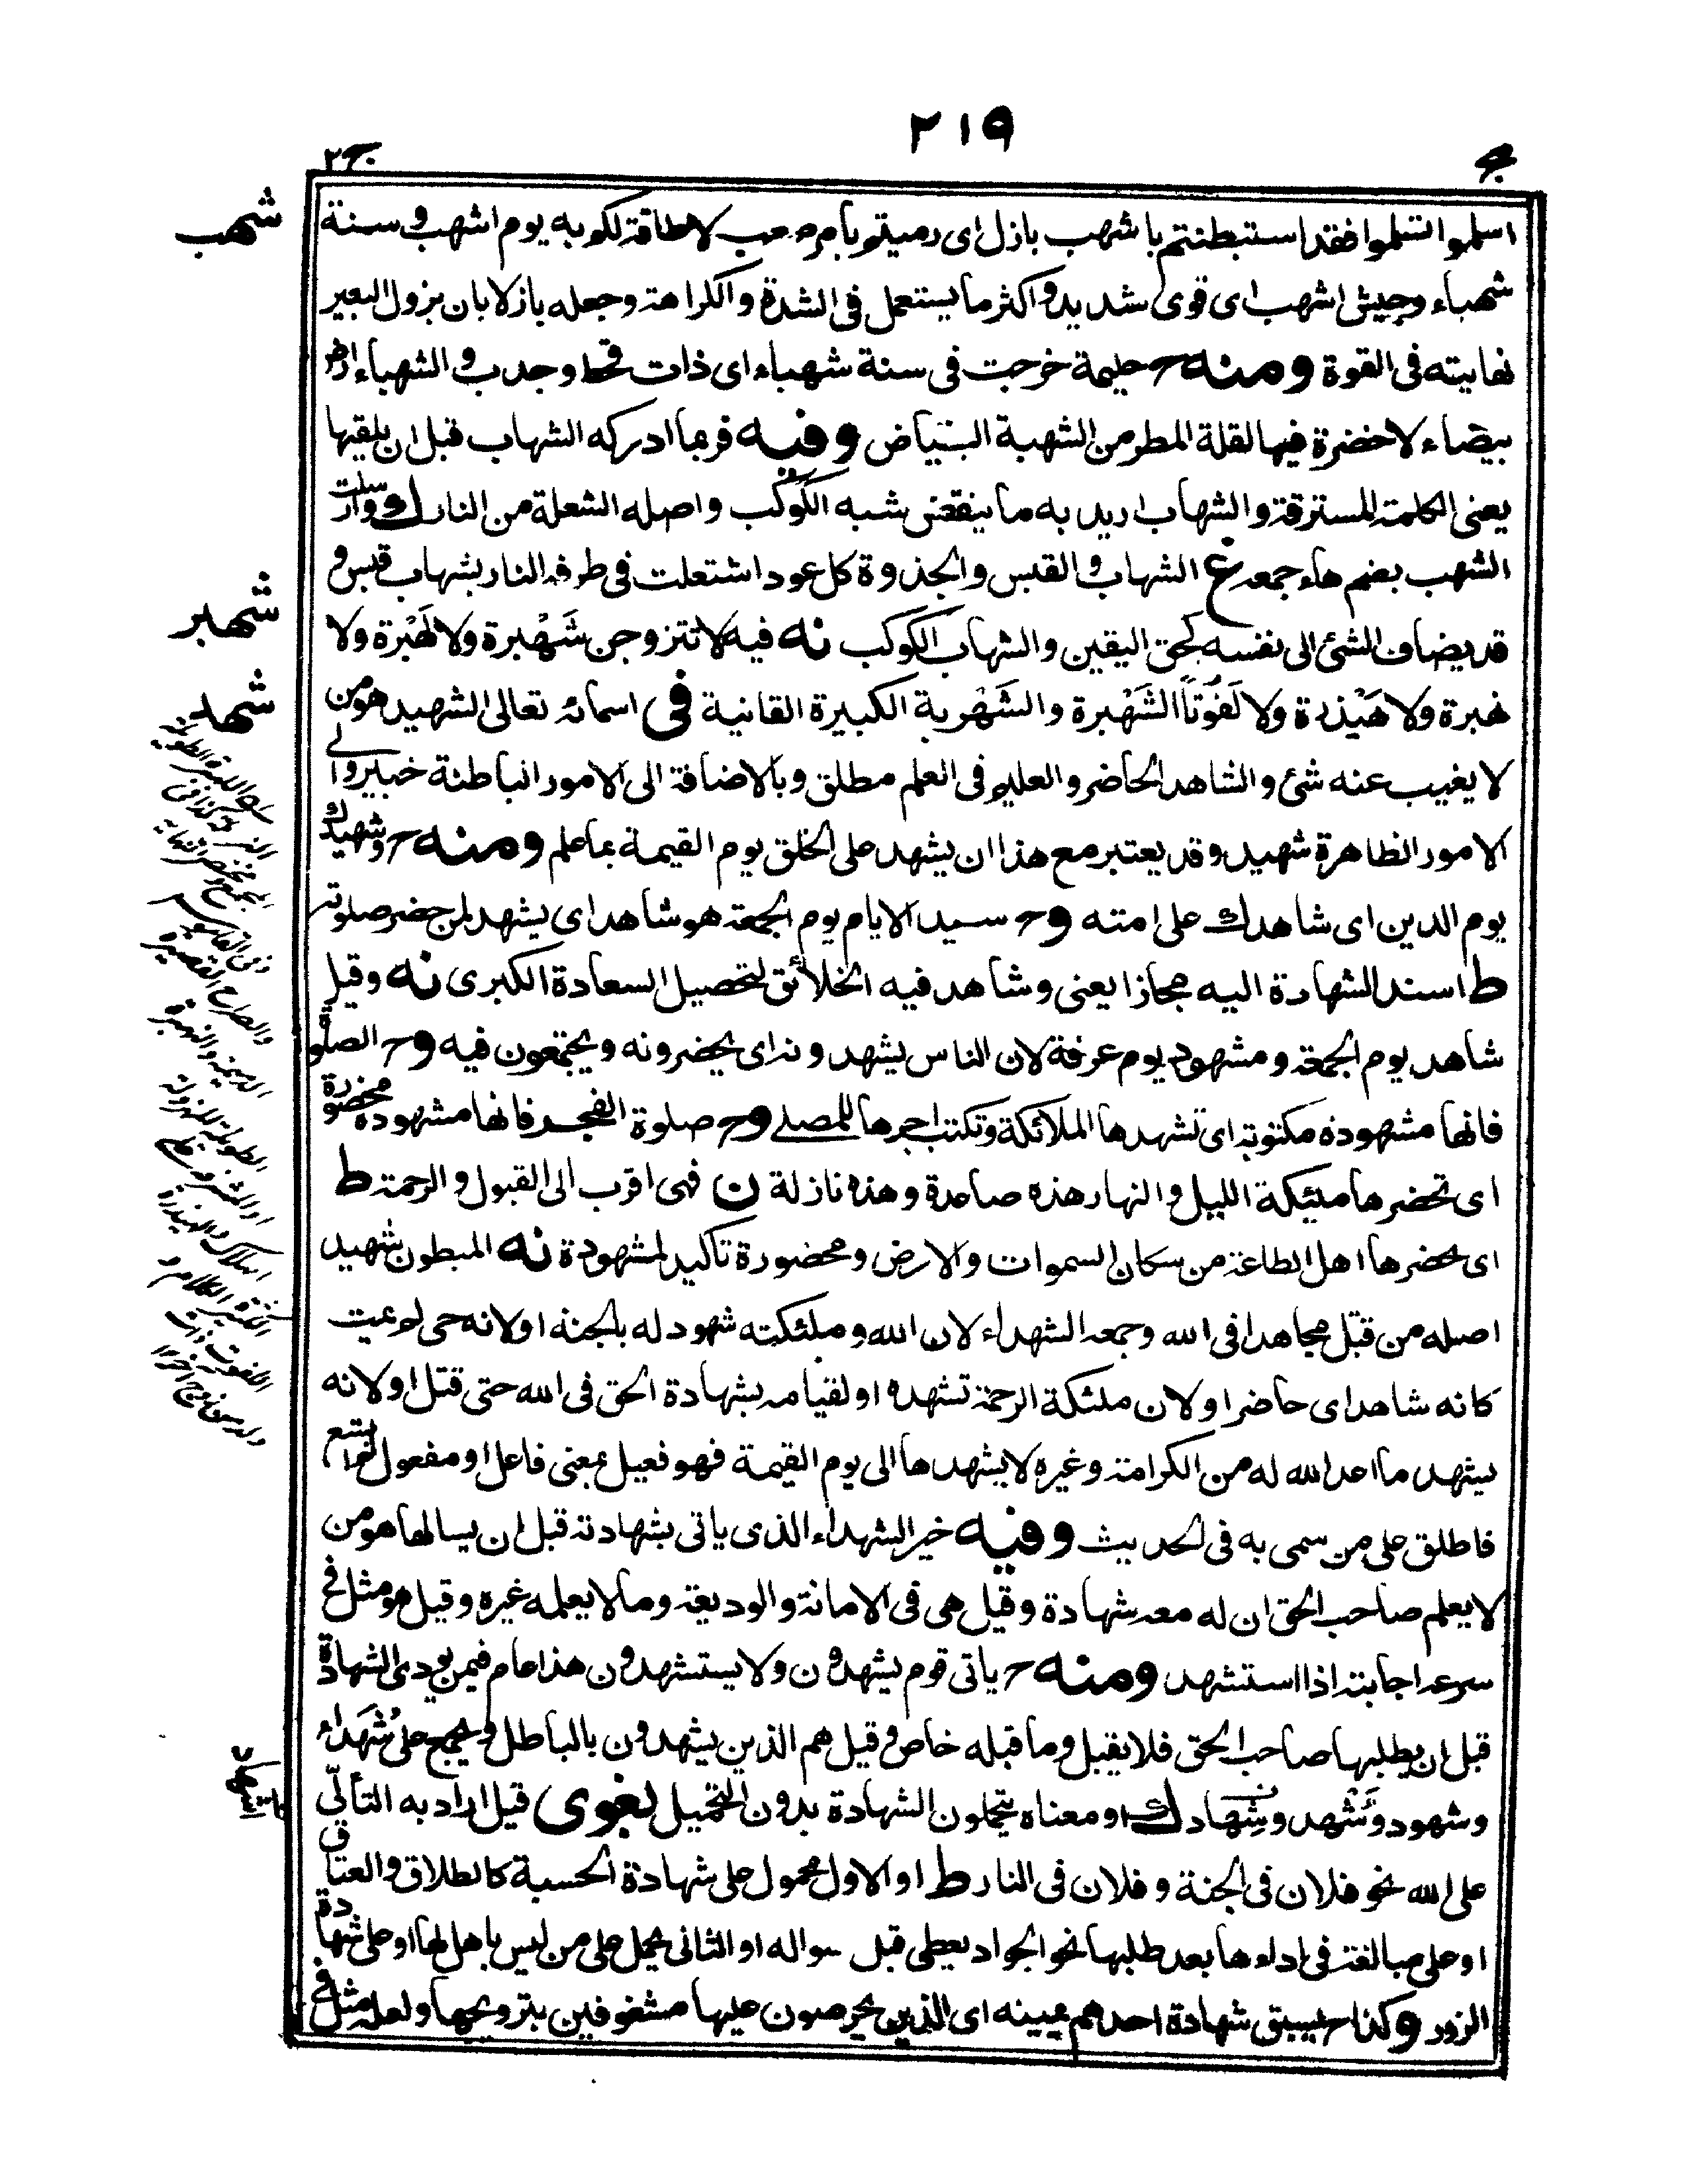 ٢١٩
ج ٢
اسلموا تسلموا فقد استبطنتم با شهب بازل اى رميتم بامر صعب لا طاقة لكم به يوم اشهب و سنة
شهباء وجيش اشهب اى قوى شديد و اكثر ما يستعمل فى الشدة والكراهة وجعله بازلا لان بزول البعير
نهايته فى القوة ومنه ح حليمة خرجت فى سنة شهباء اى ذات قحط وجدب و الشهباء ارض
بيضاء لا خضرة فيها لقلة المطر من الشهبة البياض وفيه فربما ادركه الشهاب قبل ان يلقيها
يعنى الكلمة المسترقة والشهاب اريد به ما ينقض شبه الكوكب واصله الشعلة من النار ك وارسلت
الشهب بضم هاء جمعه غ الشهاب والقبس والجذوة كل عود اشتعلت فى طرفه النار بشهاب قبس و
قد يضاف الشئ الى نفسه كحق اليقين والشهاب الكوكب نه فيه لا تتزوجن شَهْبرة ولا لَهْبرة ولا
نهبرة ولا هَيْذرة ولا لَفُوتًا الشَهْبرة والشَهْربة الكبيرة الفانية فى اسمائه تعالى الشهيد هو من
لا يغيب عنه شئ والشاهد الحاضر والعليم فى العلم مطلق وبالاضافة الى الامور الباطنة خبير والى
الامور الظاهرة شهيد وقد يعتبر مع هذا ان يشهد على الخلق يوم القيمة بما علم ومنه ح وشهيدك
يوم الدين اى شاهدك على امته وح سيد الايام يوم الجمعة هو شاهد اى يشهد لمن حضر صلوته
ط اسند الشهادة اليه مجازا يعنى وشاهد فيه الخلائق لتحصيل السعادة الكبرى نه وقيل
شاهد يوم الجمعة ومشهود يوم عرفة لان الناس يشهدونه اى يحضرونه ويجتمعون فيه وح الصلوة
فانها مشهودة مكتوبة اى تشهدها الملائكة وتكتب اجرها للمصلى وح صلوة الفجر فانها مشهودة محضورة
اى تحضرها ملئكة الليل والنهار هذه صاعدة وهذه نازلة ن فهى اقرب الى القبول والرحمة ط
اى يحضرها اهل الطاعة من سكان السموات والارض ومحضورة تاكيد لمشهودة نه المبطون شهيد
اصله من قتل مجاهدا فى الله وجمعه الشهداء لان الله وملئكته شهود له بالجنة او لانه حى لم يمت
كانه شاهد اى حاضر او لان ملئكة الرحمة تشهده او لقيامه بشهادة الحق فى الله حتى قتل او لانه
يشهد ما اعد الله له من الكرامة وغيره لا يشهدها الى يوم القيمة فهو فعيل بمعنى فاعل او مفعول ثم اتسع
فاطلق على من سمى به فى الحديث وفيه خير الشهداء الذى ياتى بشهادته قبل ان يسالها هو من
لا يعلم صاحب الحق ان له معه شهادة وقيل هى فى الامانة والوديعة وما لا يعلمه غيره وقيل هو مثل فى
سرعة اجابته اذا استشهد ومنه ح ياتى قوم يشهدون ولا يستشهدون هذا عام فيمن يودى الشهادة
قبل ان يطلبها صاحب الحق فلا يقبل وما قبله خاص وقيل هم الذين يشهدون بالباطل ويجمع على شُهَداء
وشهود وشُهَّد وشُهَّاد ك او معناه يتحملون الشهادة بدون التحميل بغوى قيل اراد به التألّى
على الله نحو فلان فى الجنة وفلان فى النار ط او الاول محمول على شهادة الحسبة كالطلاق والعتاق
او على مبالغة فى اداءها بعد طلبها نحو الجواد يعطى قبل سواله او الثانى يحمل على من ليس باهل لها او على شهادة
الزور وكذا ح يسبق شهادة احدهم يمينه اى الذين يحرصون عليها مشغوفين بترويجها ولعله مثل فى
شهب
شهبر
شهد